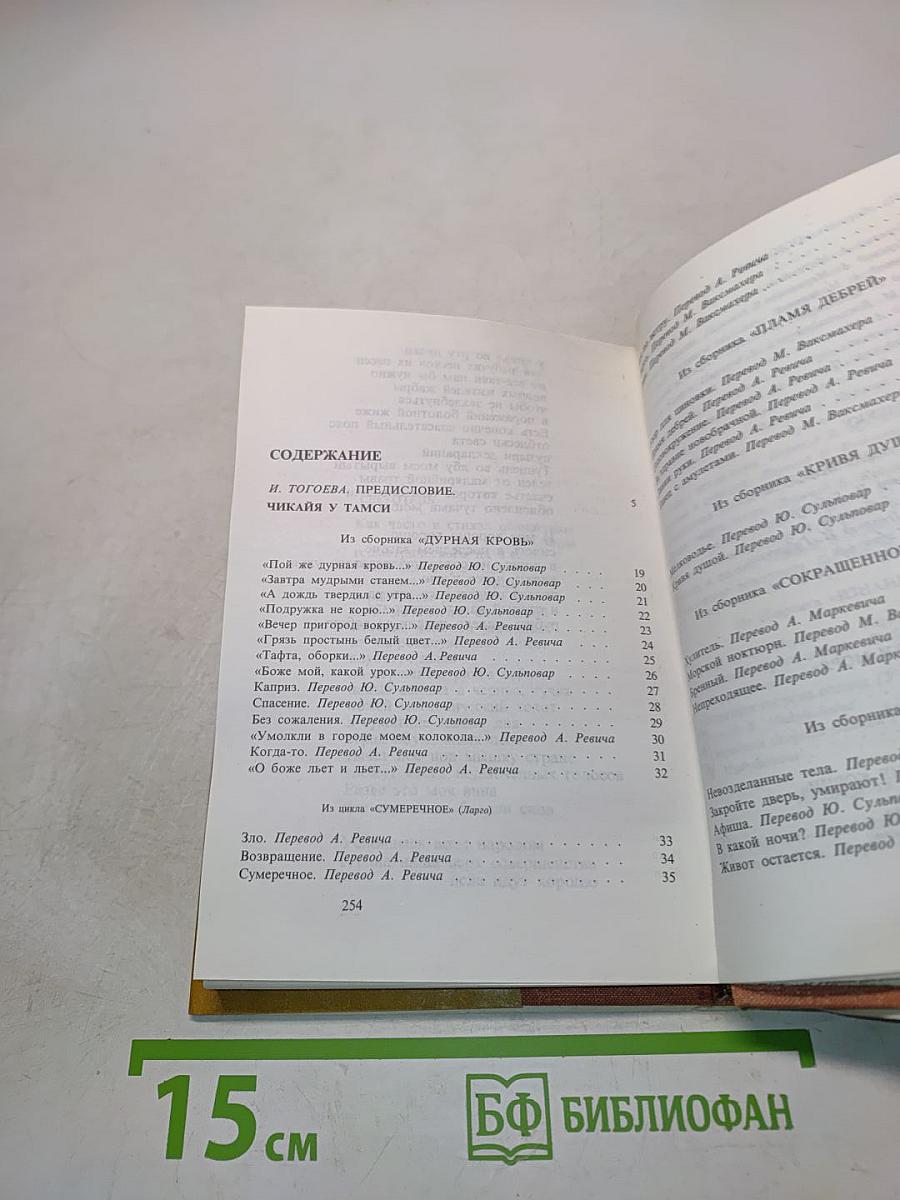 СОДЕРЖАНИЕ
И. ТОГОЕВА. ПРЕДИСЛОВИЕ. 5
ЧИКАЙЯ У ТАМСИ
Из сборника «ДУРНАЯ КРОВЬ»
«Пой же дурная кровь...» Перевод Ю. Сульповар . . . . 19
«Завтра мудрыми станем...» Перевод Ю. Сульповар . . . 20
«А дождь твердил с утра...» Перевод Ю. Сульповар . . . 21
«Подружка не корю...» Перевод Ю. Сульповар . . . . . 22
«Вечер пригород вокруг...» Перевод А. Ревича . . . . . 23
«Грязь простынь белый цвет...» Перевод А. Ревича . . . 24
«Тафта, оборки...» Перевод А. Ревича . . . . . . . . 25
«Боже мой, какой урок...» Перевод Ю. Сульповар . . . . 26
Каприз. Перевод Ю. Сульповар . . . . . . . . . . . 27
Спасение. Перевод Ю. Сульповар . . . . . . . . . . 28
Без сожаления. Перевод Ю. Сульповар . . . . . . . . 29
«Умолкли в городе моем колокола...» Перевод А. Ревича 30
Когда-то. Перевод А. Ревича . . . . . . . . . . . . 31
«О боже льет и льет...» Перевод А. Ревича . . . . . . 32
Из цикла «СУМЕРЕЧНОЕ» (Ларго)
Зло. Перевод А. Ревича . . . . . . . . . . . . . . 33
Возвращение. Перевод А. Ревича . . . . . . . . . . 34
Сумеречное. Перевод А. Ревича . . . . . . . . . . . 35
254
Перевод А. Ревича
Перевод М. Ваксмахера
Перевод М. Ваксмахера
Из сборника «ПЛАМЯ ДЕБРЕЙ»
Перевод М. Ваксмахера
дебрей. Перевод А. Ревича
Перевод А. Ревича
новобрачной. Перевод А. Ревича
руки. Перевод А. Ревича
с амулетами. Перевод М. Ваксмахера
Из сборника «КРИВЯ ДУШ
Перевод Ю. Сульповар
душой. Перевод Ю. Сульповар
Из сборника «СОКРАЩЕННО
Перевод А. Маркевича
Морской ноктюрн. Перевод М. Ва
Бренный. Перевод А. Маркевича
Непреходящее. Перевод А. Марк
Из сборника
Невозделанные тела. Перевод
Закройте дверь, умирают!
Афиша. Перевод Ю. Сульп
В какой ночи? Перевод Ю
Живот остается. Перевод
15 см
БФ БИБЛИОФАН